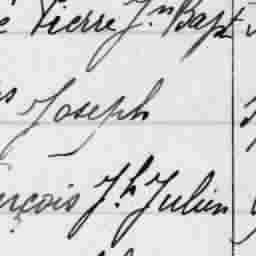 Pierre Jn Bapt
Joseph
ançois Jh Julien